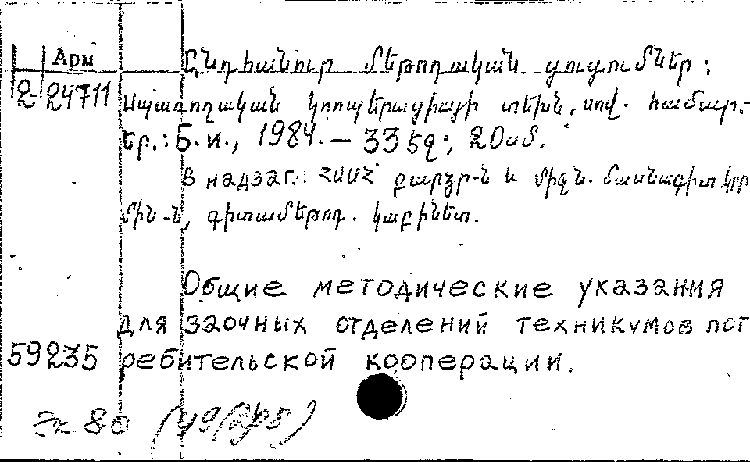 Арм
2-24711
Ընդհանուր մեթոդական ցուցումներ:
Սպառողական կոոպերացիայի տեխն. սով. համար.
Եր.: Б. и., 1984. — 33 էջ; 20 սմ.
В надзаг.: ՀՍՍՀ բարձր-ն և միջն. մասնագիտ կրթ
մին-ն, գիտամեթոդ. կաբինետ.
Общие методические указания
для заочных отделений техникумов пот
59235 ребительской кооперации.